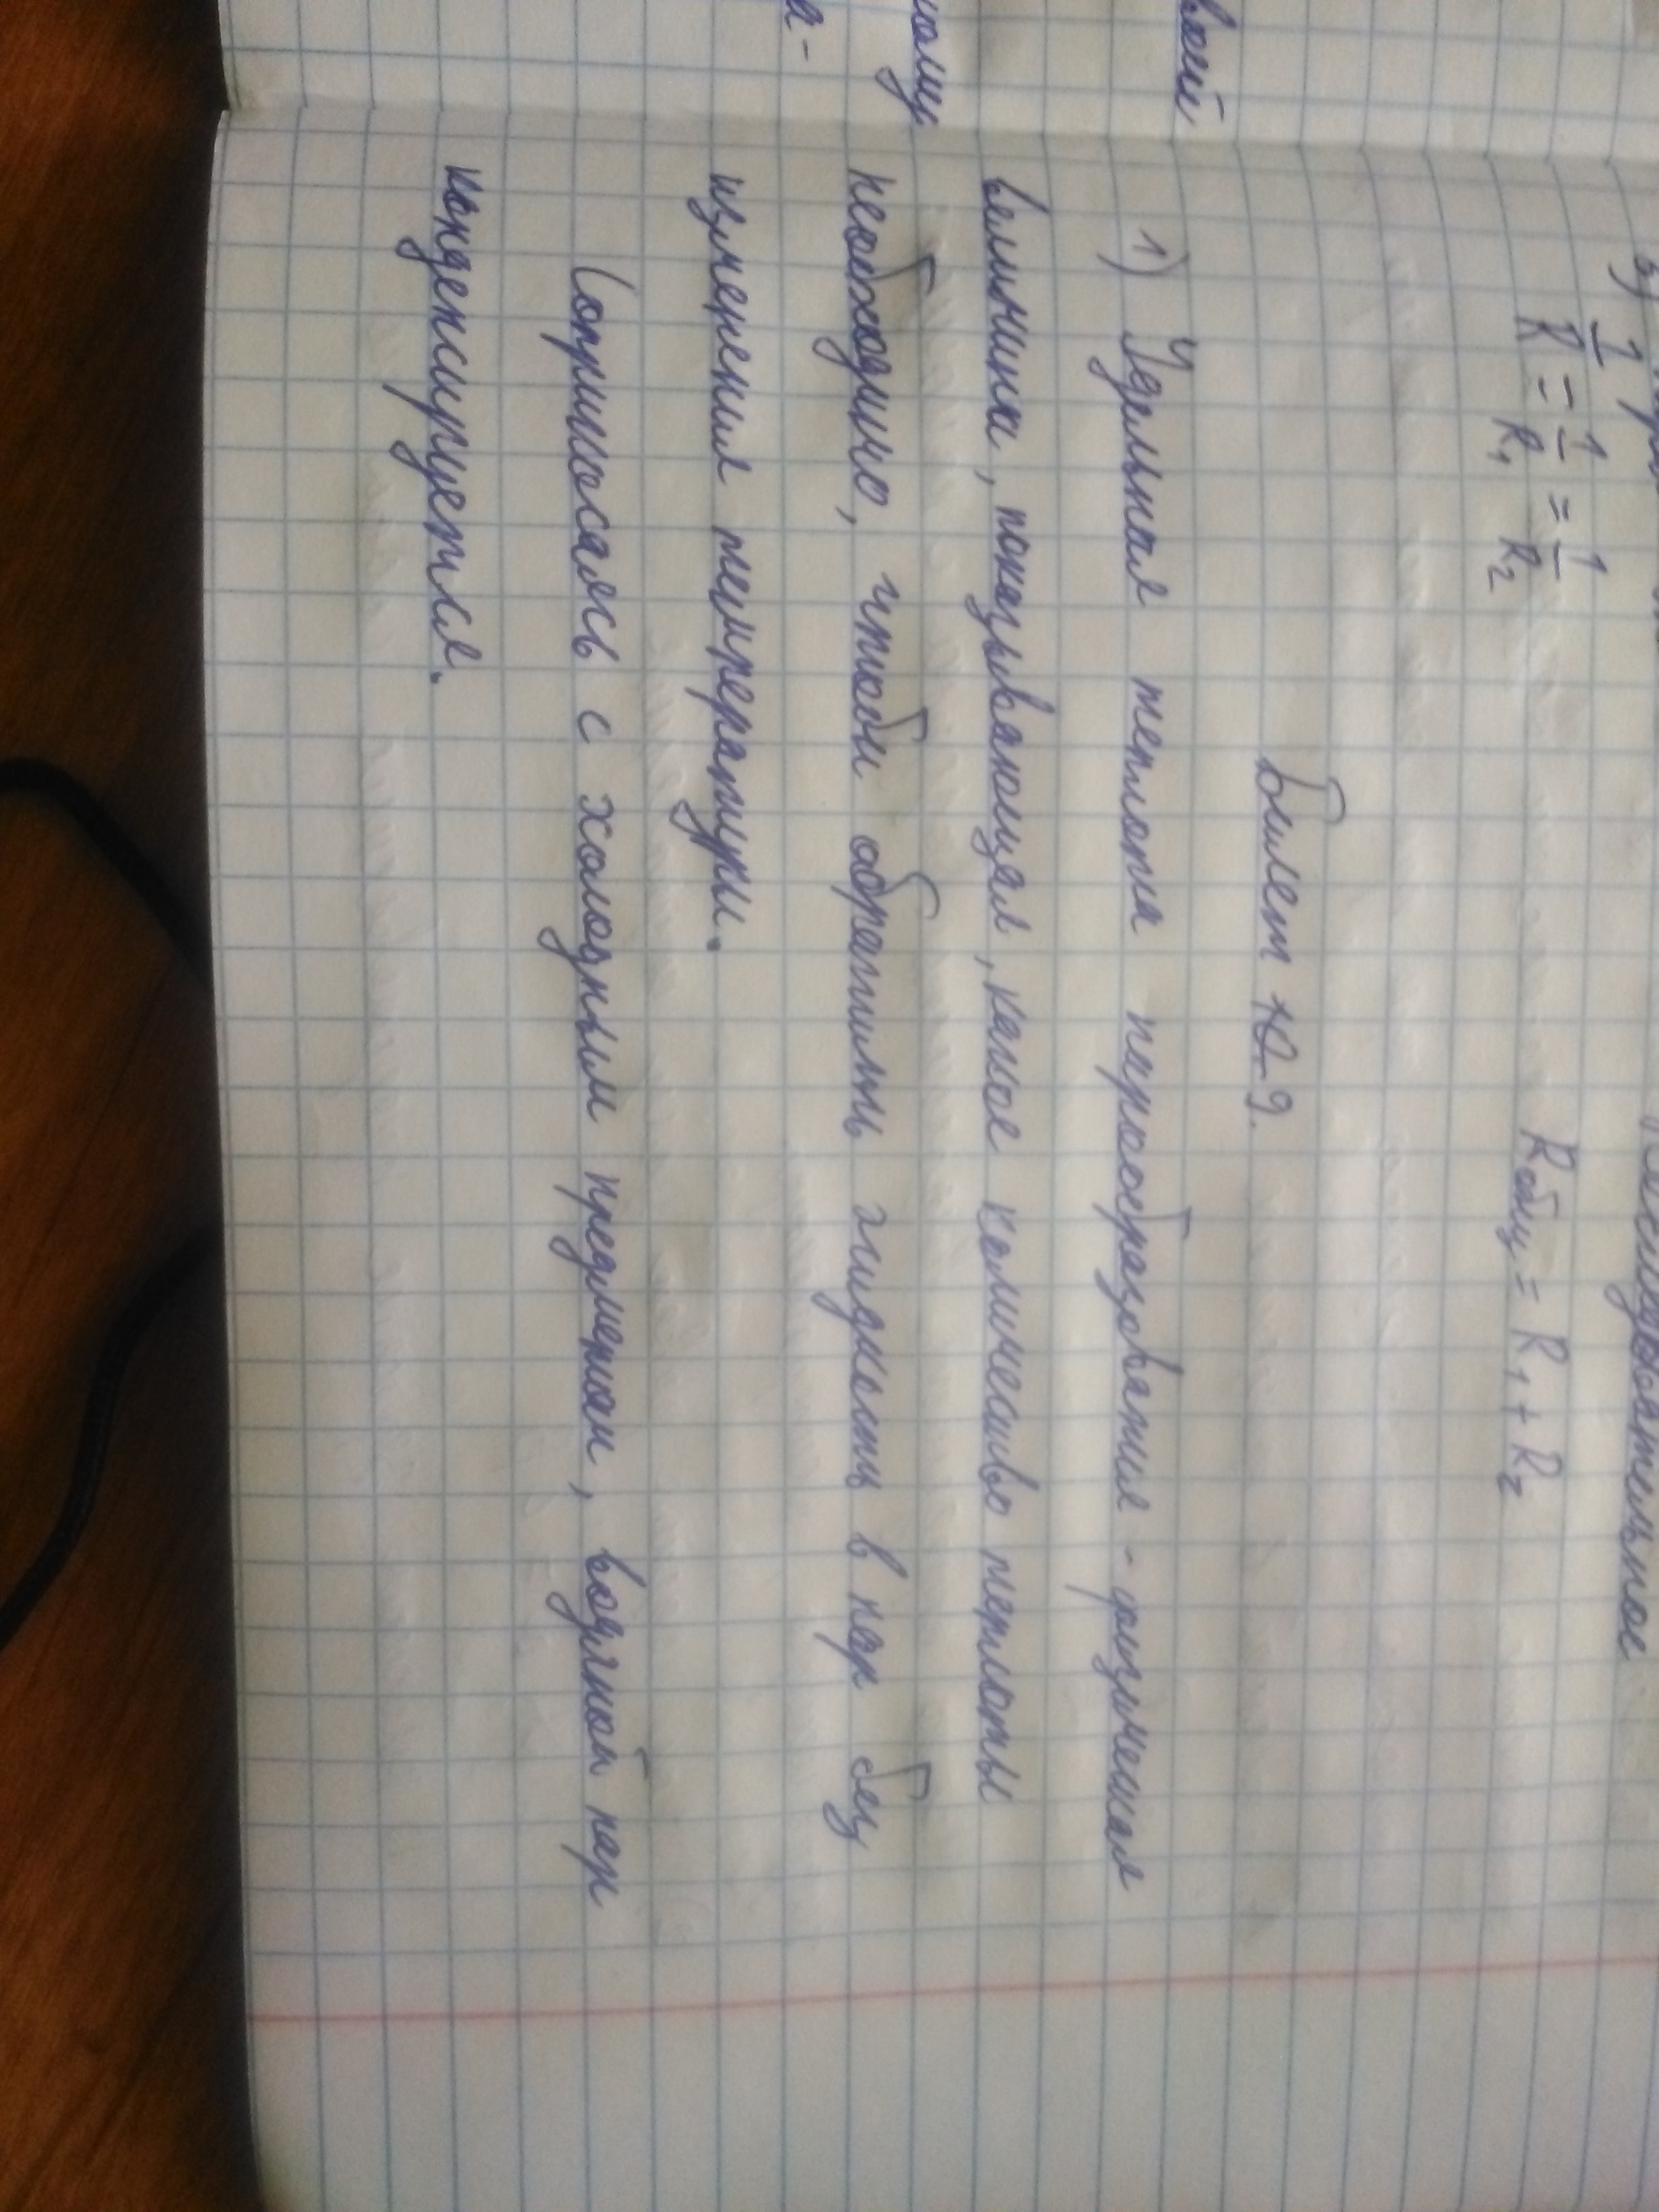 последовательное
1/R = 1/R₁ = 1/R₂ Rобщ = R₁ + R₂
Билет 10 9.
1) Удельная теплота парообразования - физическая
величина, показывающая, какое количество теплоты
необходимо, чтобы обратить жидкость в пар без
изменения температуры.
Соприкосаясь с холодным предметом, водяной пар
конденсируется.